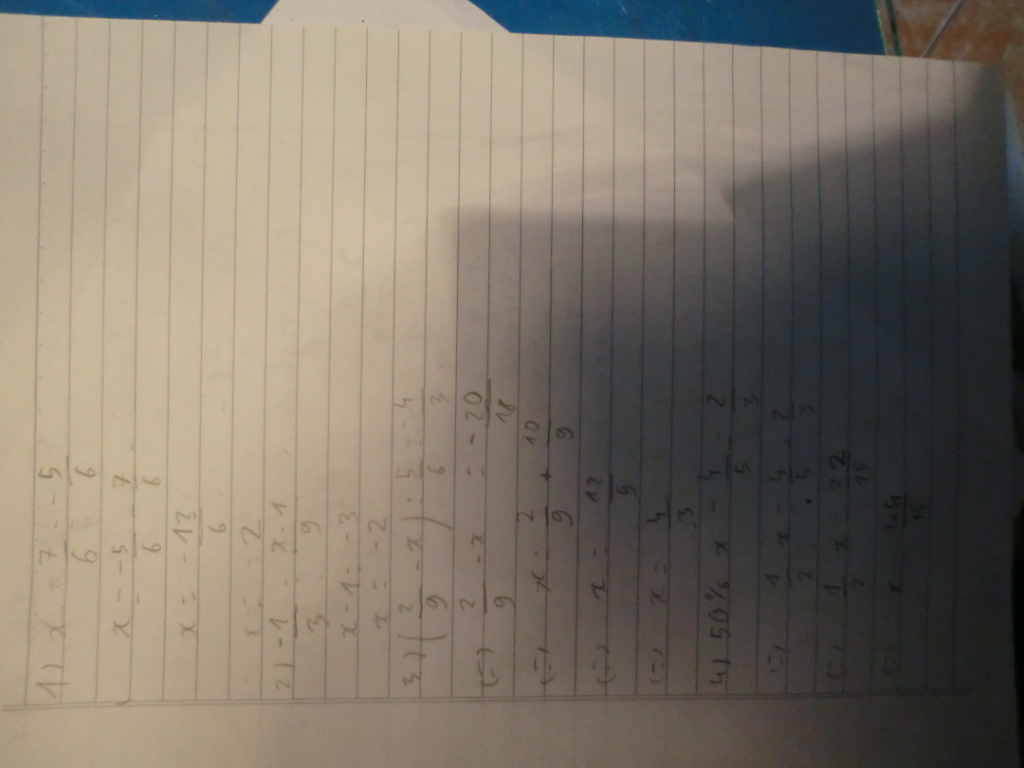 1) x + 7/6 = -5/6
x = -5/6 - 7/6
x = -12/6
x = -2
2) -1/3 = x-1/9
x-1 = -3
x = -2
3) (2/9 - x) : 5/6 = -4/3
(=) 2/9 - x = -20/18
(=) x = 2/9 + 10/9
(=) x = 12/9
(=) x = 4/3
4) 50% x - 4/5 = 2/3
(=) 1/2 x - 4/5 = 2/3
(=) 1/2 x = 22/15
(=) x = 44/15